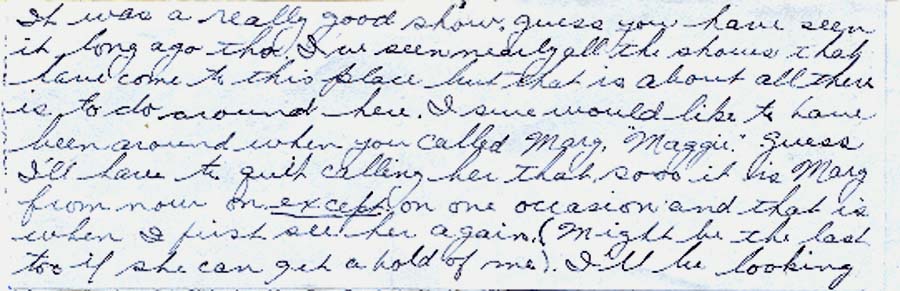 It was a really good show. guess you have seen
it long ago tho. I've seen nearly all the shows that
have come to this place but that is about all there
is to do around here. I sure would like to have
been around when you called Marg, "Maggie." Guess
I'll have to quit calling her that sooo it is Marg
from now on except on one occasion and that is
when I first see her again. (Might be the last
too if she can get ahold of me). I'll be looking